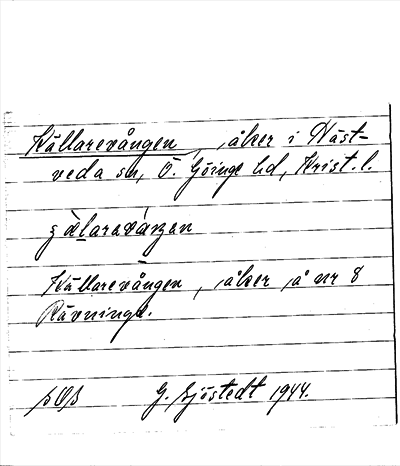 Källarevången, åker i Näst-
veda sn, Ö. Göinge hd, Krist. l.
Källarevången, åker å nr 8
Rävninge.
G. Sjöstedt 1944.